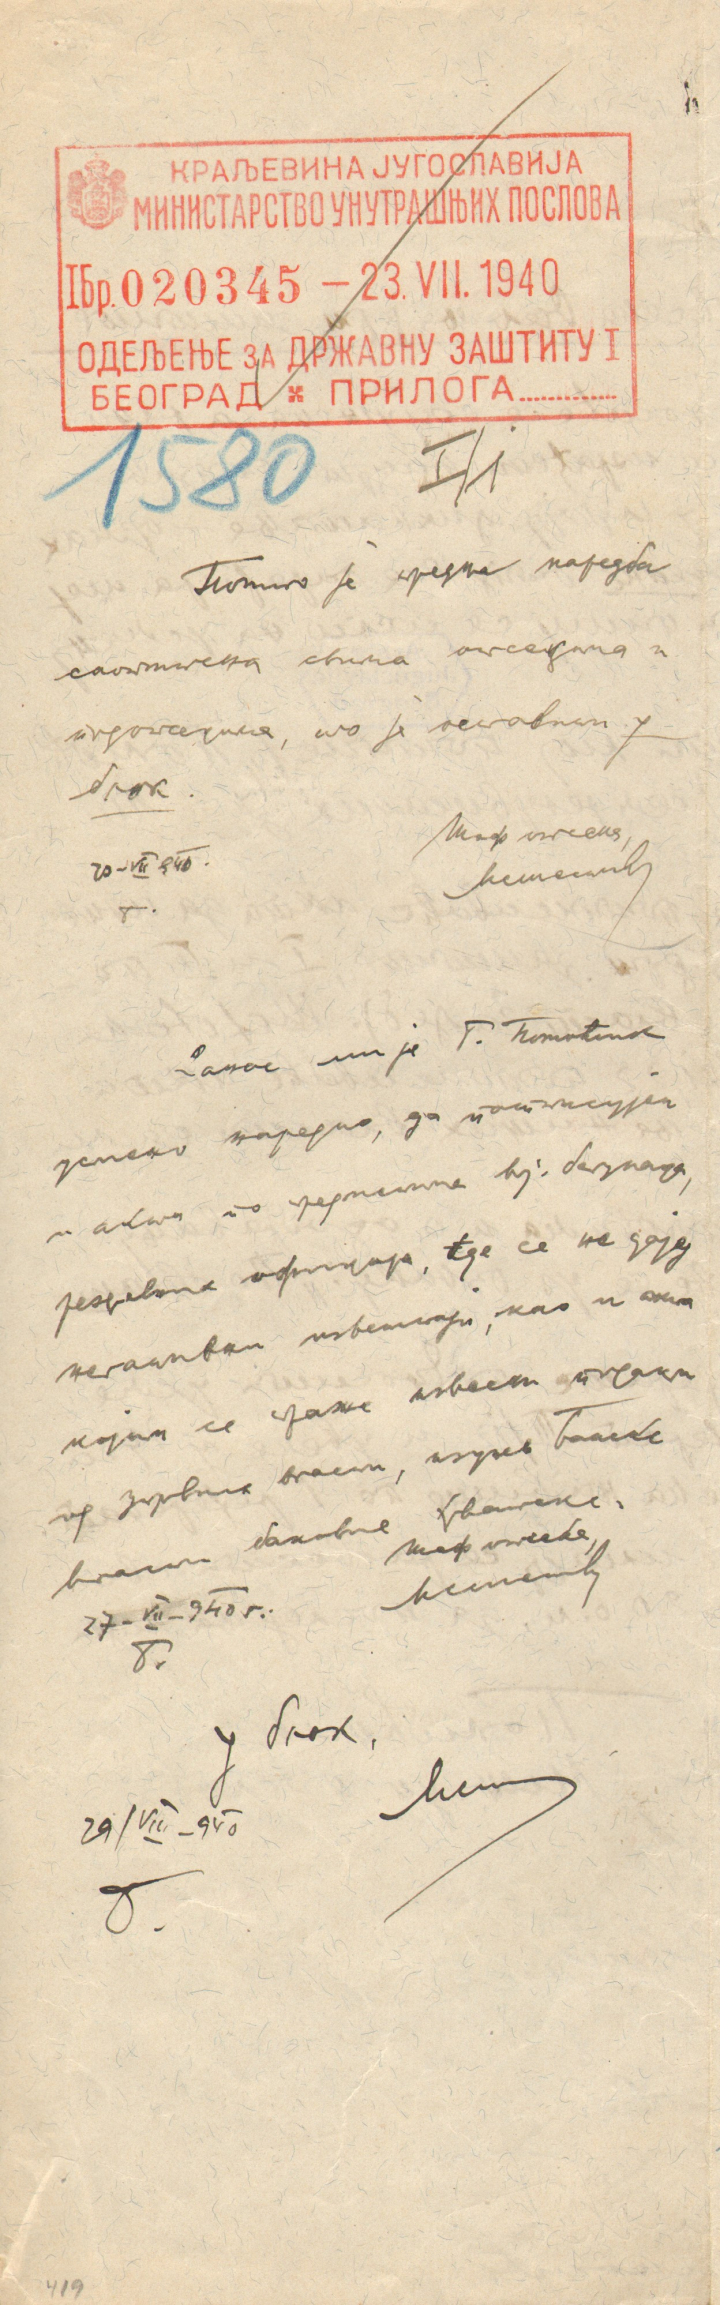 КРАЉЕВИНА ЈУГОСЛАВИЈА
МИНИСТАРСТВО УНУТРАШЊИХ ПОСЛОВА
I Бр. 020345 – 23. VII. 1940
ОДЕЉЕЊЕ ЗА ДРЖАВНУ ЗАШТИТУ I
БЕОГРАД ПРИЛОГА
1580
I/1
Пошто је предња наредба
саопштена свима отсецима и
подотсецима, то је оставити у
блок.
Шеф отсека,
VII 940.
Данас ми је Г. Помоћник
усмено наредио, да потписујем
и акта по предметима вој. бегунаца,
резервних официра, где се не дају
негативни извештаји, као и акта
којим се траже извесни подаци
од власти, изузев Банске
власти бановине Хрватске.
Шеф отсека,
27-VII-940 г.
Б.
у блок.
29/VIII-940
Б.
419